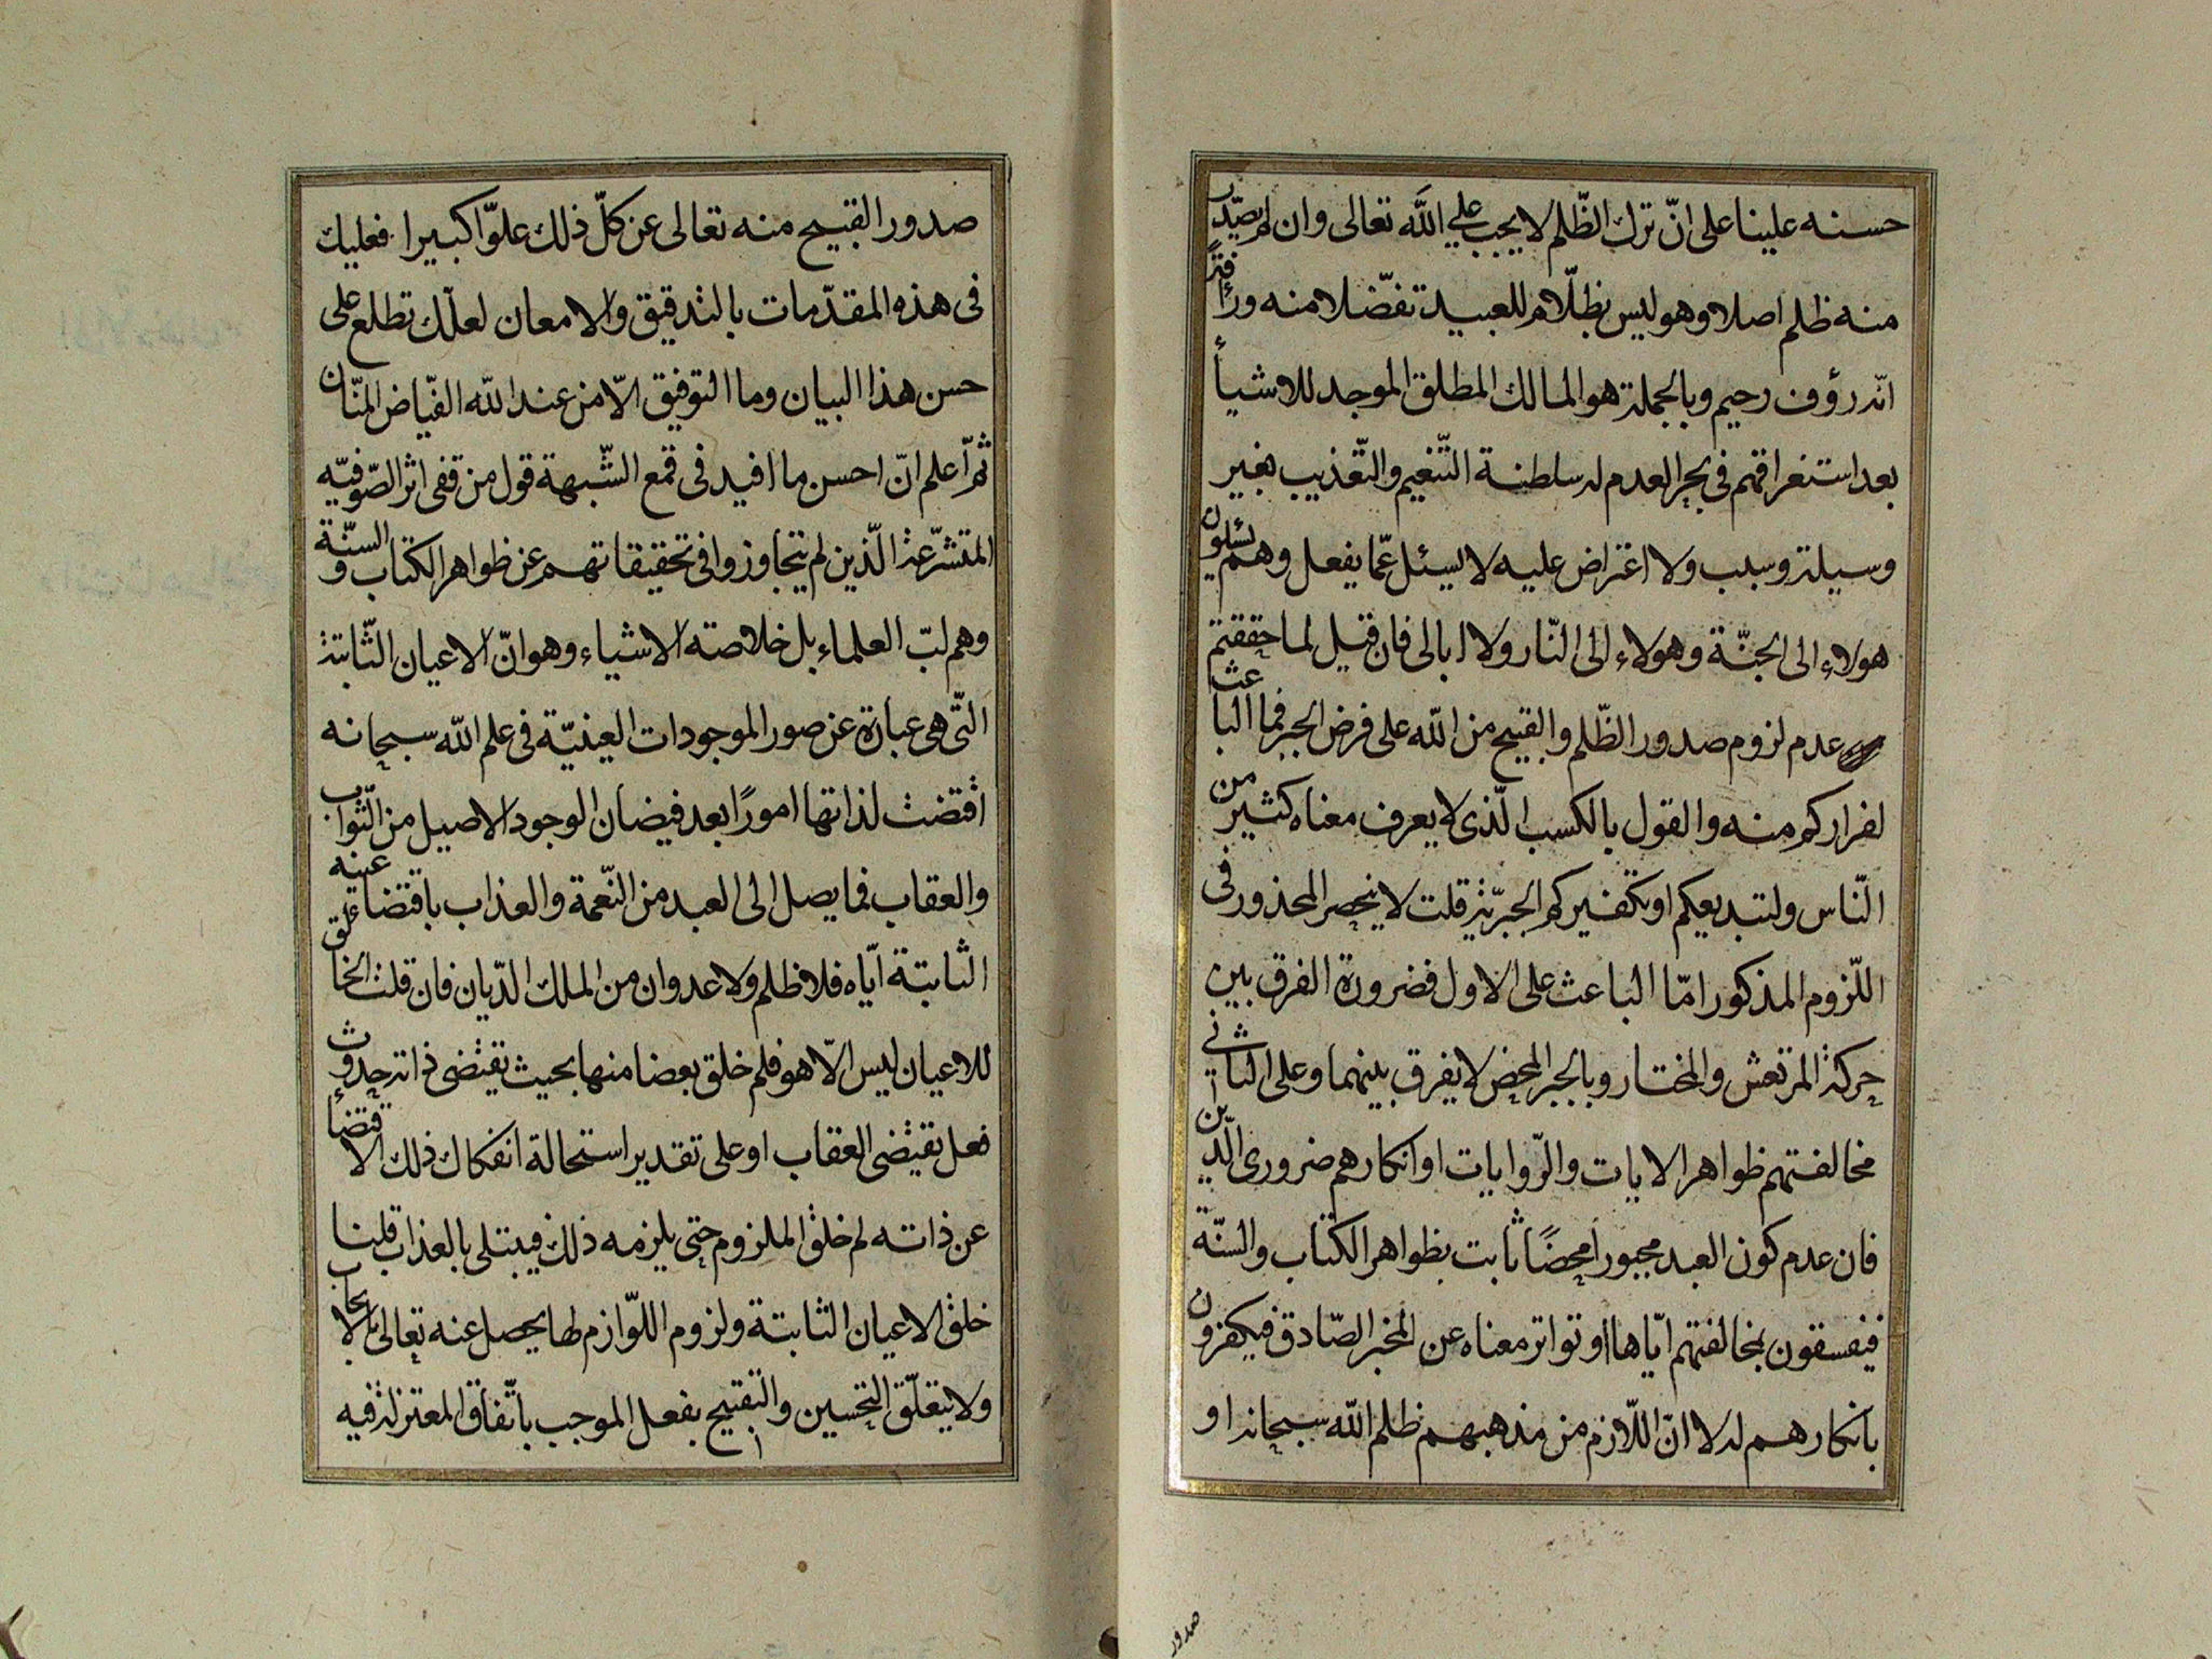 حسنه علينا على انّ ترك الظّلم لا يجب على الله تعالى وان لم يصدر
منه ظلم اصلا وهو ليس بظلّام للعبيد تفضّلا منه ورأفةً
انّه رؤف رحيم وبالجملة هو المالك المطلق الموجد للاشيأ
بعد استغراقهم في بحر العدم له سلطنة التّنعيم والتّعذيب بغير
وسيلة وسبب ولا اعتراض عليه لا يسئل عمّا يفعل وهم يسئلون
هولاء الى الجنّة وهولاء الى النّار ولا ابالى فان قيل لما حققتم
عدم لزوم صدور الظّلم والقبيح من الله على فرض الجبر فما الباعث
لفراركم منه والقول بالكسب الّذى لا يعرف معناه كثير من
النّاس ولتبديعكم او تكفيركم الجبريّة قلت لا ينحصر المحذور فى
اللّزوم المذكور امّا الباعث على الاول فضرورة الفرق بين
حركة المرتعش والمختار وبالجبر المحض لا يفرق بينهما وعلى الثانى
مخالفتهم ظواهر الايات والرّوايات او انكارهم ضرورى الدّين
فان عدم كون العبد مجبورا محضًا ثابت بظواهر الكتاب والسنّة
فيفسقون بمخالفتهم ايّاها او تواتر معناه عن المخبر الصّادق فيكفرون
بانكارهم له لا انّ اللّازم من مذهبهم ظلم الله سبحانه او
صدور
صدور القبيح منه تعالى عن كلّ ذلك علوّا كبيرا فعليك
فى هذه المقدّمات بالتدقيق والامعان لعلّك تطلع على
حسن هذا البيان وما التوفيق الّا من عند الله الفيّاض المنّان
ثمّ اعلم انّ احسن ما افيد فى قمع الشّبهة قول من قفى اثر الصّوفيّه
المتشرّعة الّذين لم يتجاوزوا فى تحقيقاتهم عن ظواهر الكتاب والسنّة
وهم لبّ العلماء بل خلاصته الاشياء وهو انّ الاعيان الثّابتة
التّى هى عبارة عن صور الموجودات العينيّة فى علم الله سبحانه
اقتضت لذاتها امورًا بعد فيضان الوجود الاصيل من الثّواب
والعقاب فما يصل الى العبد من النّعمة والعذاب باقتضاء عينه
الثابتة ايّاه فلا ظلم ولا عدوان من الملك الدّيان فان قلت الخالق
للاعيان ليس الّا هو فلم خلق بعضا منها بحيث يقتضى ذاته حدوث
فعل يقتضى العقاب او على تقدير استحالة انفكاك ذلك الاقتضأ
عن ذاته لم خلق الملزوم حتى يلزمه ذلك فيبتلى بالعذاب قلنا
خلق الاعيان الثابتة ولزوم اللّوازم لها يحصل عنه تعالى بالايجاب
ولا يتعلّق التحسين والتقبيح بفعل الموجب باتّفاق المعتزلة فيه